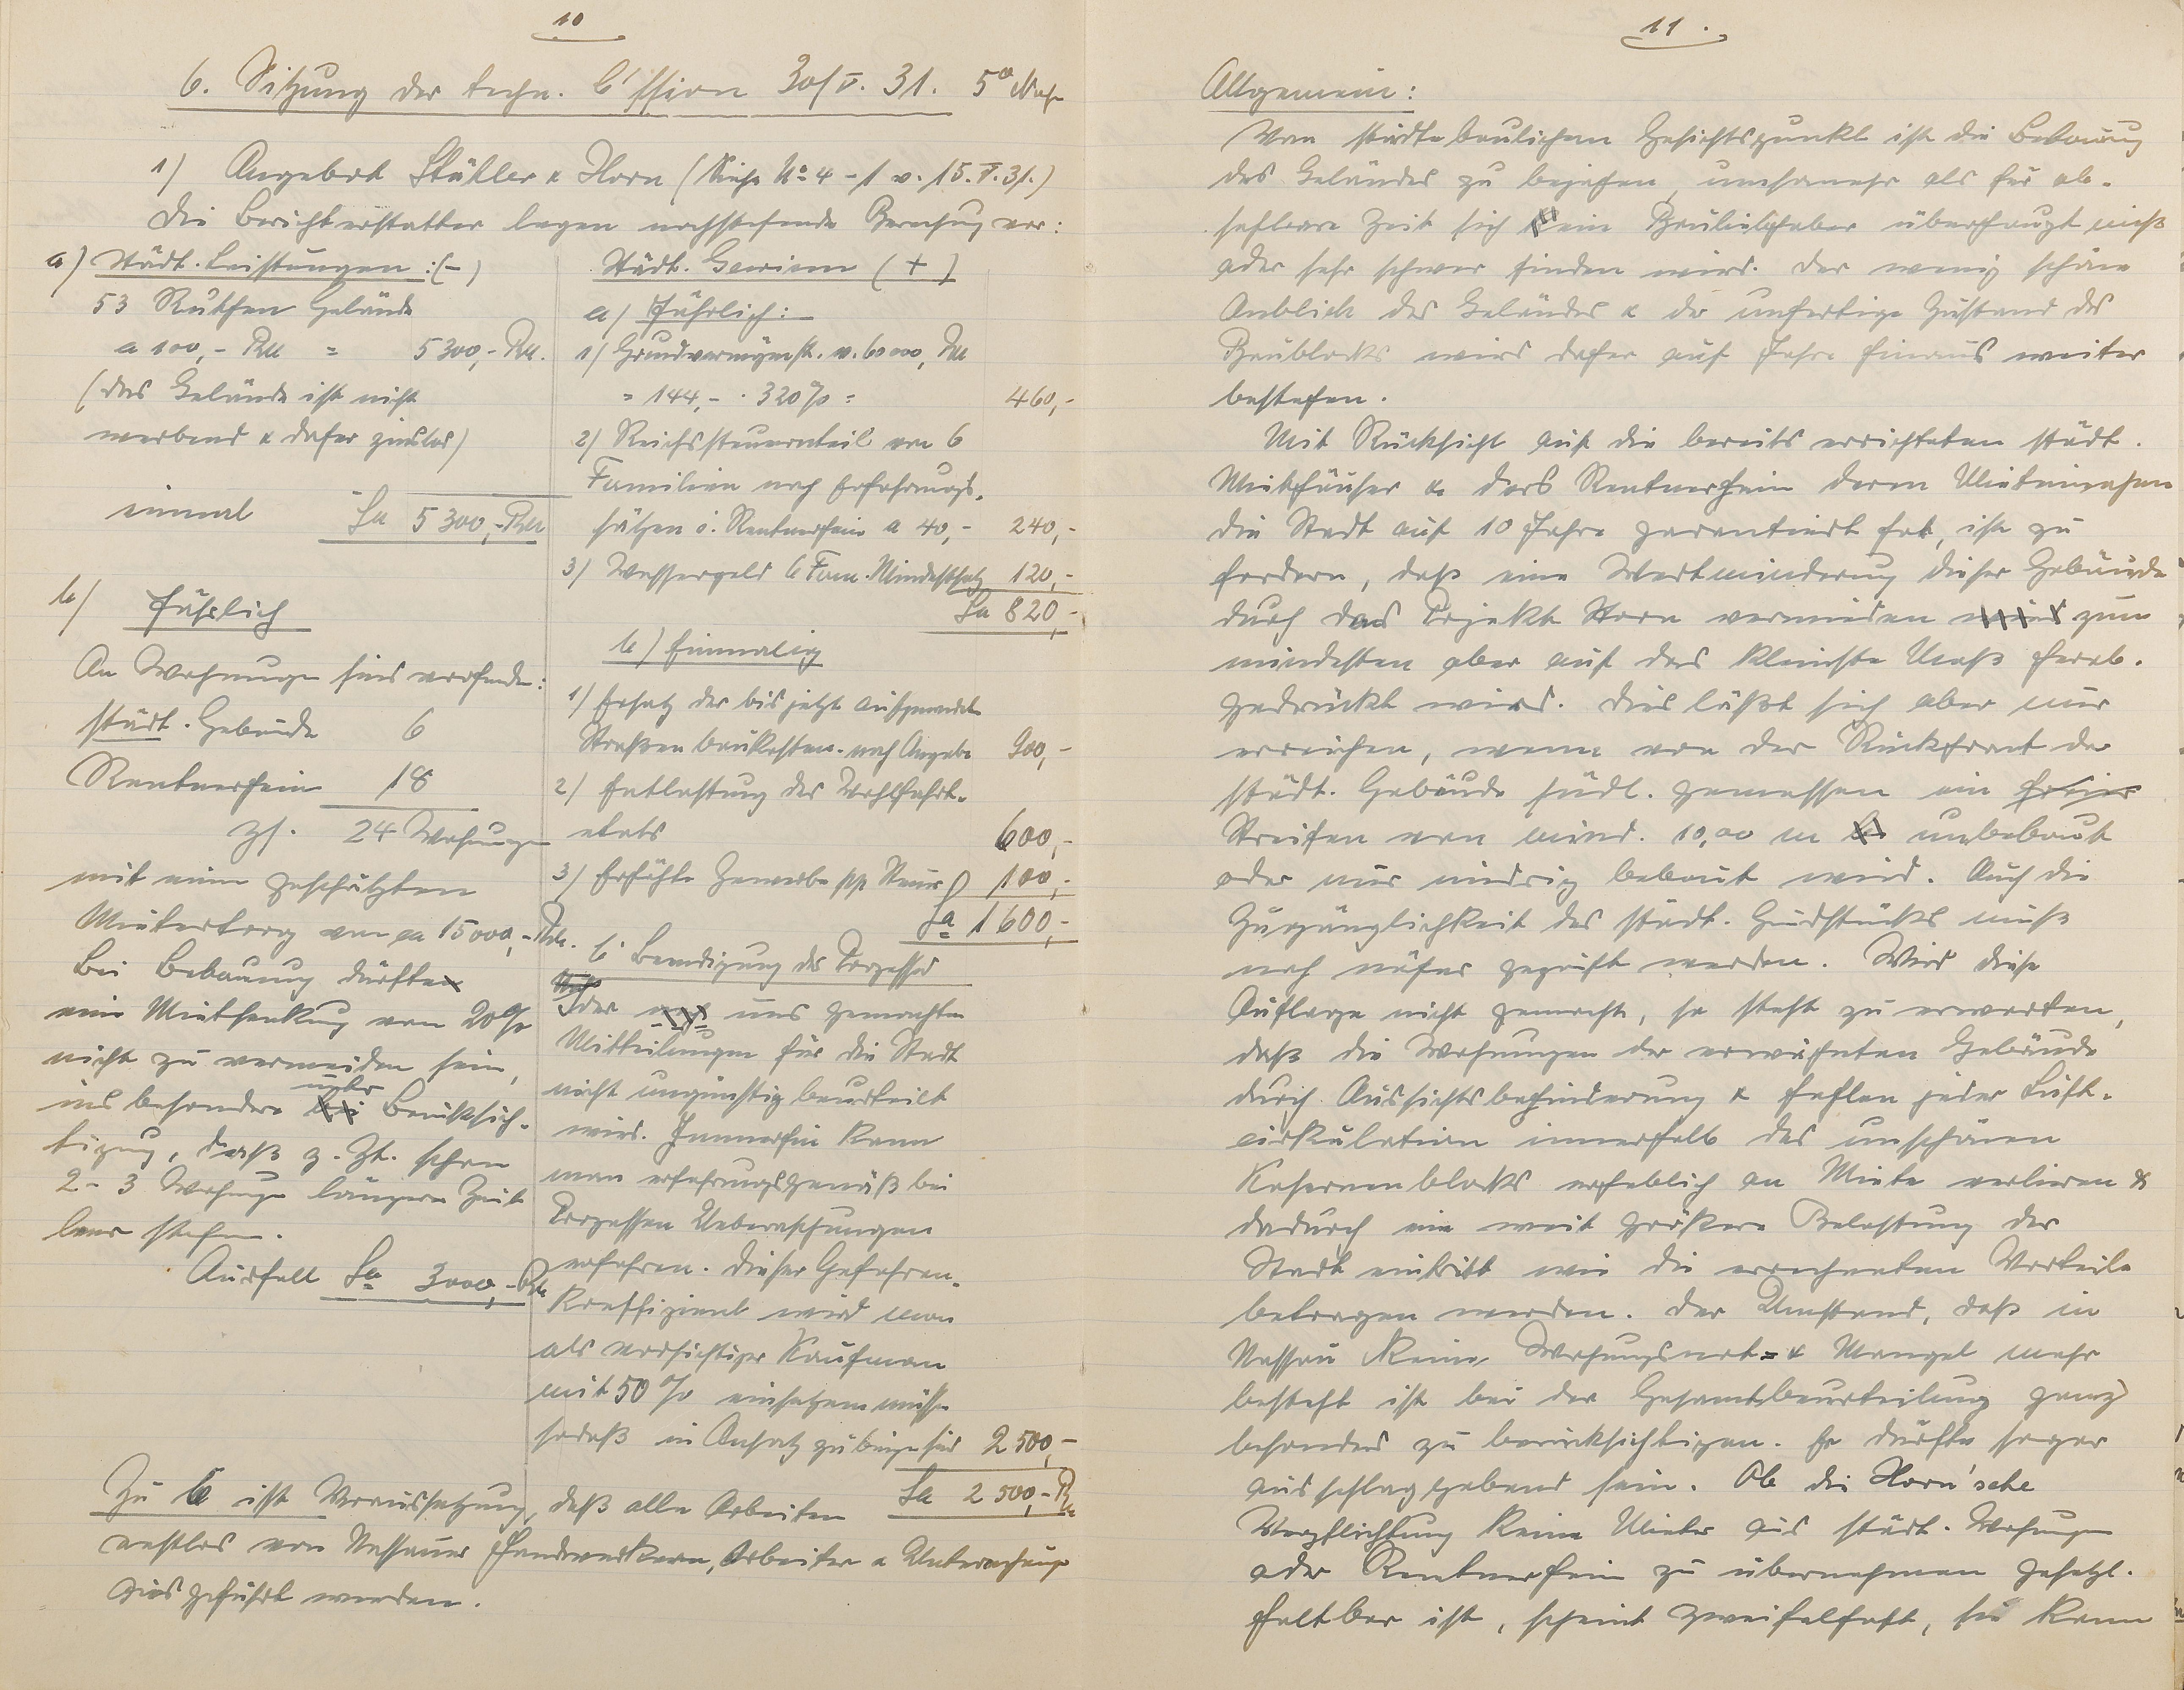 10
6. Sitzung der techn. C'ssion 30/V. 31. 5° Nach
1) Angebot Stüller & Horn (Siehe No 4 - 1 v. 15.V.31.)
Die Berichterstatter legen nachstehende Berechnung vor:
a) Städt. Leistungen :(-)
53 Ruthen Gelände
a 100,- RM = 5300,- RM.
(das Gelände ist nicht
werbend & daher zinslos)
einmal Sa 5300,- RM
b) Jährlich
An Wohnungen sind vorhanden:
städt. Gebäude 6
Rentnerheim 18
zs. 24 Wohnungen
mit einem geschätzten
Mietertrag von ca 15000,- RM.
Bei Bebauung dürfte
eine Mietsenkung von 20%
nicht zu vermeiden sein,
insbesondere unter Berücksich-
tigung, daß z. Zt. schon
2-3 Wohnungen längere Zeit
leer stehen.
Ausfall Sa 3000,- RM
Städt. Gewinn (+)
a) Jährlich:
1) Grundvermögenst. v. 60000, RM
= 144,- · 320% = 460,-
2) Reichssteueranteil von 6
Familien nach Erfahrungs-
sätzen i. Rentnerheim a 40,- 240,-
3) Wassergeld 6 Fam. Mindestsatz 120,-
Sa 820,-
b) Einmalig
1) Ersatz der bis jetzt aufgewendeten
Straßenbaukosten. nach Angabe 900,-
2) Entlastung des Wohlfahrt-
etats 600,-
3) Erhöhte Gewerbe pp Steuer 100,-
Sa 1600,-
C Beendigung des Prozesses
der uns gemachten
Mitteilungen für die Stadt
nicht ungünstig beurteilt
wird. Immerhin kann
man erfahrungsgemäß bei
Prozessen Ueberraschungen
erfahren. Dieser Gefahren-
koeffizient wird man
als vorsichtiger Kaufmann
mit 50% einsetzen müssen
sodaß in Ansatz zu bringen sind 2500,-
Sa 2500,- RM
Zu b ist Voraussetzung, daß alle Arbeiten
restlos von Nassauer Handwerkern, Arbeiter & Unternehmer
ausgeführt werden.
11.
Allgemein:
Vom städtebaulichen Gesichtspunkt ist die Bebauung
des Geländes zu bejahen, umsomehr als für ab-
sehbare Zeit sich ein Bauliebhaber überhaupt nicht
oder sehr schwer finden wird. Der wenig schöne
Anblick des Geländes & der unfertige Zustand des
Baublocks wird daher auf Jahre hinaus weiter
bestehen.
Mit Rücksicht auf die bereits errichteten städt.
Miethäuser & das Rentnerheim deren Mieteinnahmen
die Stadt auf 10 Jahre garantiert hat, ist zu
fordern, daß eine Wertminderung dieser Gebäude
durch das Projekt Horn vermieden zum
mindesten aber auf das kleinste Maß herab-
gedrückt wird. Dies läßt sich aber nur
erreichen, wenn von der Rückfront der
städt. Gebäude südl. gemessen ein freier
Streifen von mind. 10,00 m unbebaut
oder nur niedrig bebaut wird. Auch die
Zugänglichkeit des städt. Grundstücks muß
noch näher geprüft werden. Wird diese
Auflage nicht gemacht, so steht zu erwarten,
daß die Wohnungen der erwähnten Gebäude
durch Aussichtsbehinderung & Fehlen jeder Luft-
cirkulation innerhalb des unschönen
Kasernenblocks erheblich an Miete verlieren &
dadurch eine weit größere Belastung der
Stadt eintritt wie die errechneten Vorteile
betragen werden. Der Umstand, daß in
Nassau keine Wohnungsnot= & Mangel mehr
besteht ist bei der Gesamtbeurteilung ganz
besonders zu berücksichtigen. Er dürfte sogar
ausschlaggebend sein. Ob die Horn'sche
Verpflichtung keine Mieter aus städt. Wohnungen
oder Rentnerheim zu übernehmen gesetzl.
haltbar ist, scheint zweifelhaft, sie kann